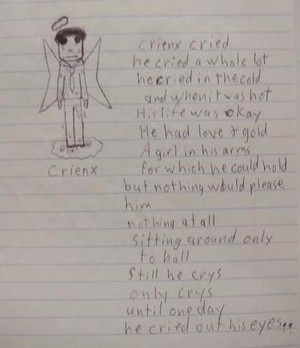 Crienx cried
he cried a whole lot
he cried in the cold
and when it was hot
His life was okay
He had love & gold
A girl in his arms
for which he could hold
but nothing would please
him
nothing at all
Sitting around only
to ball
Still he crys
only crys
until one day
he cried out his eyes..
Crienx